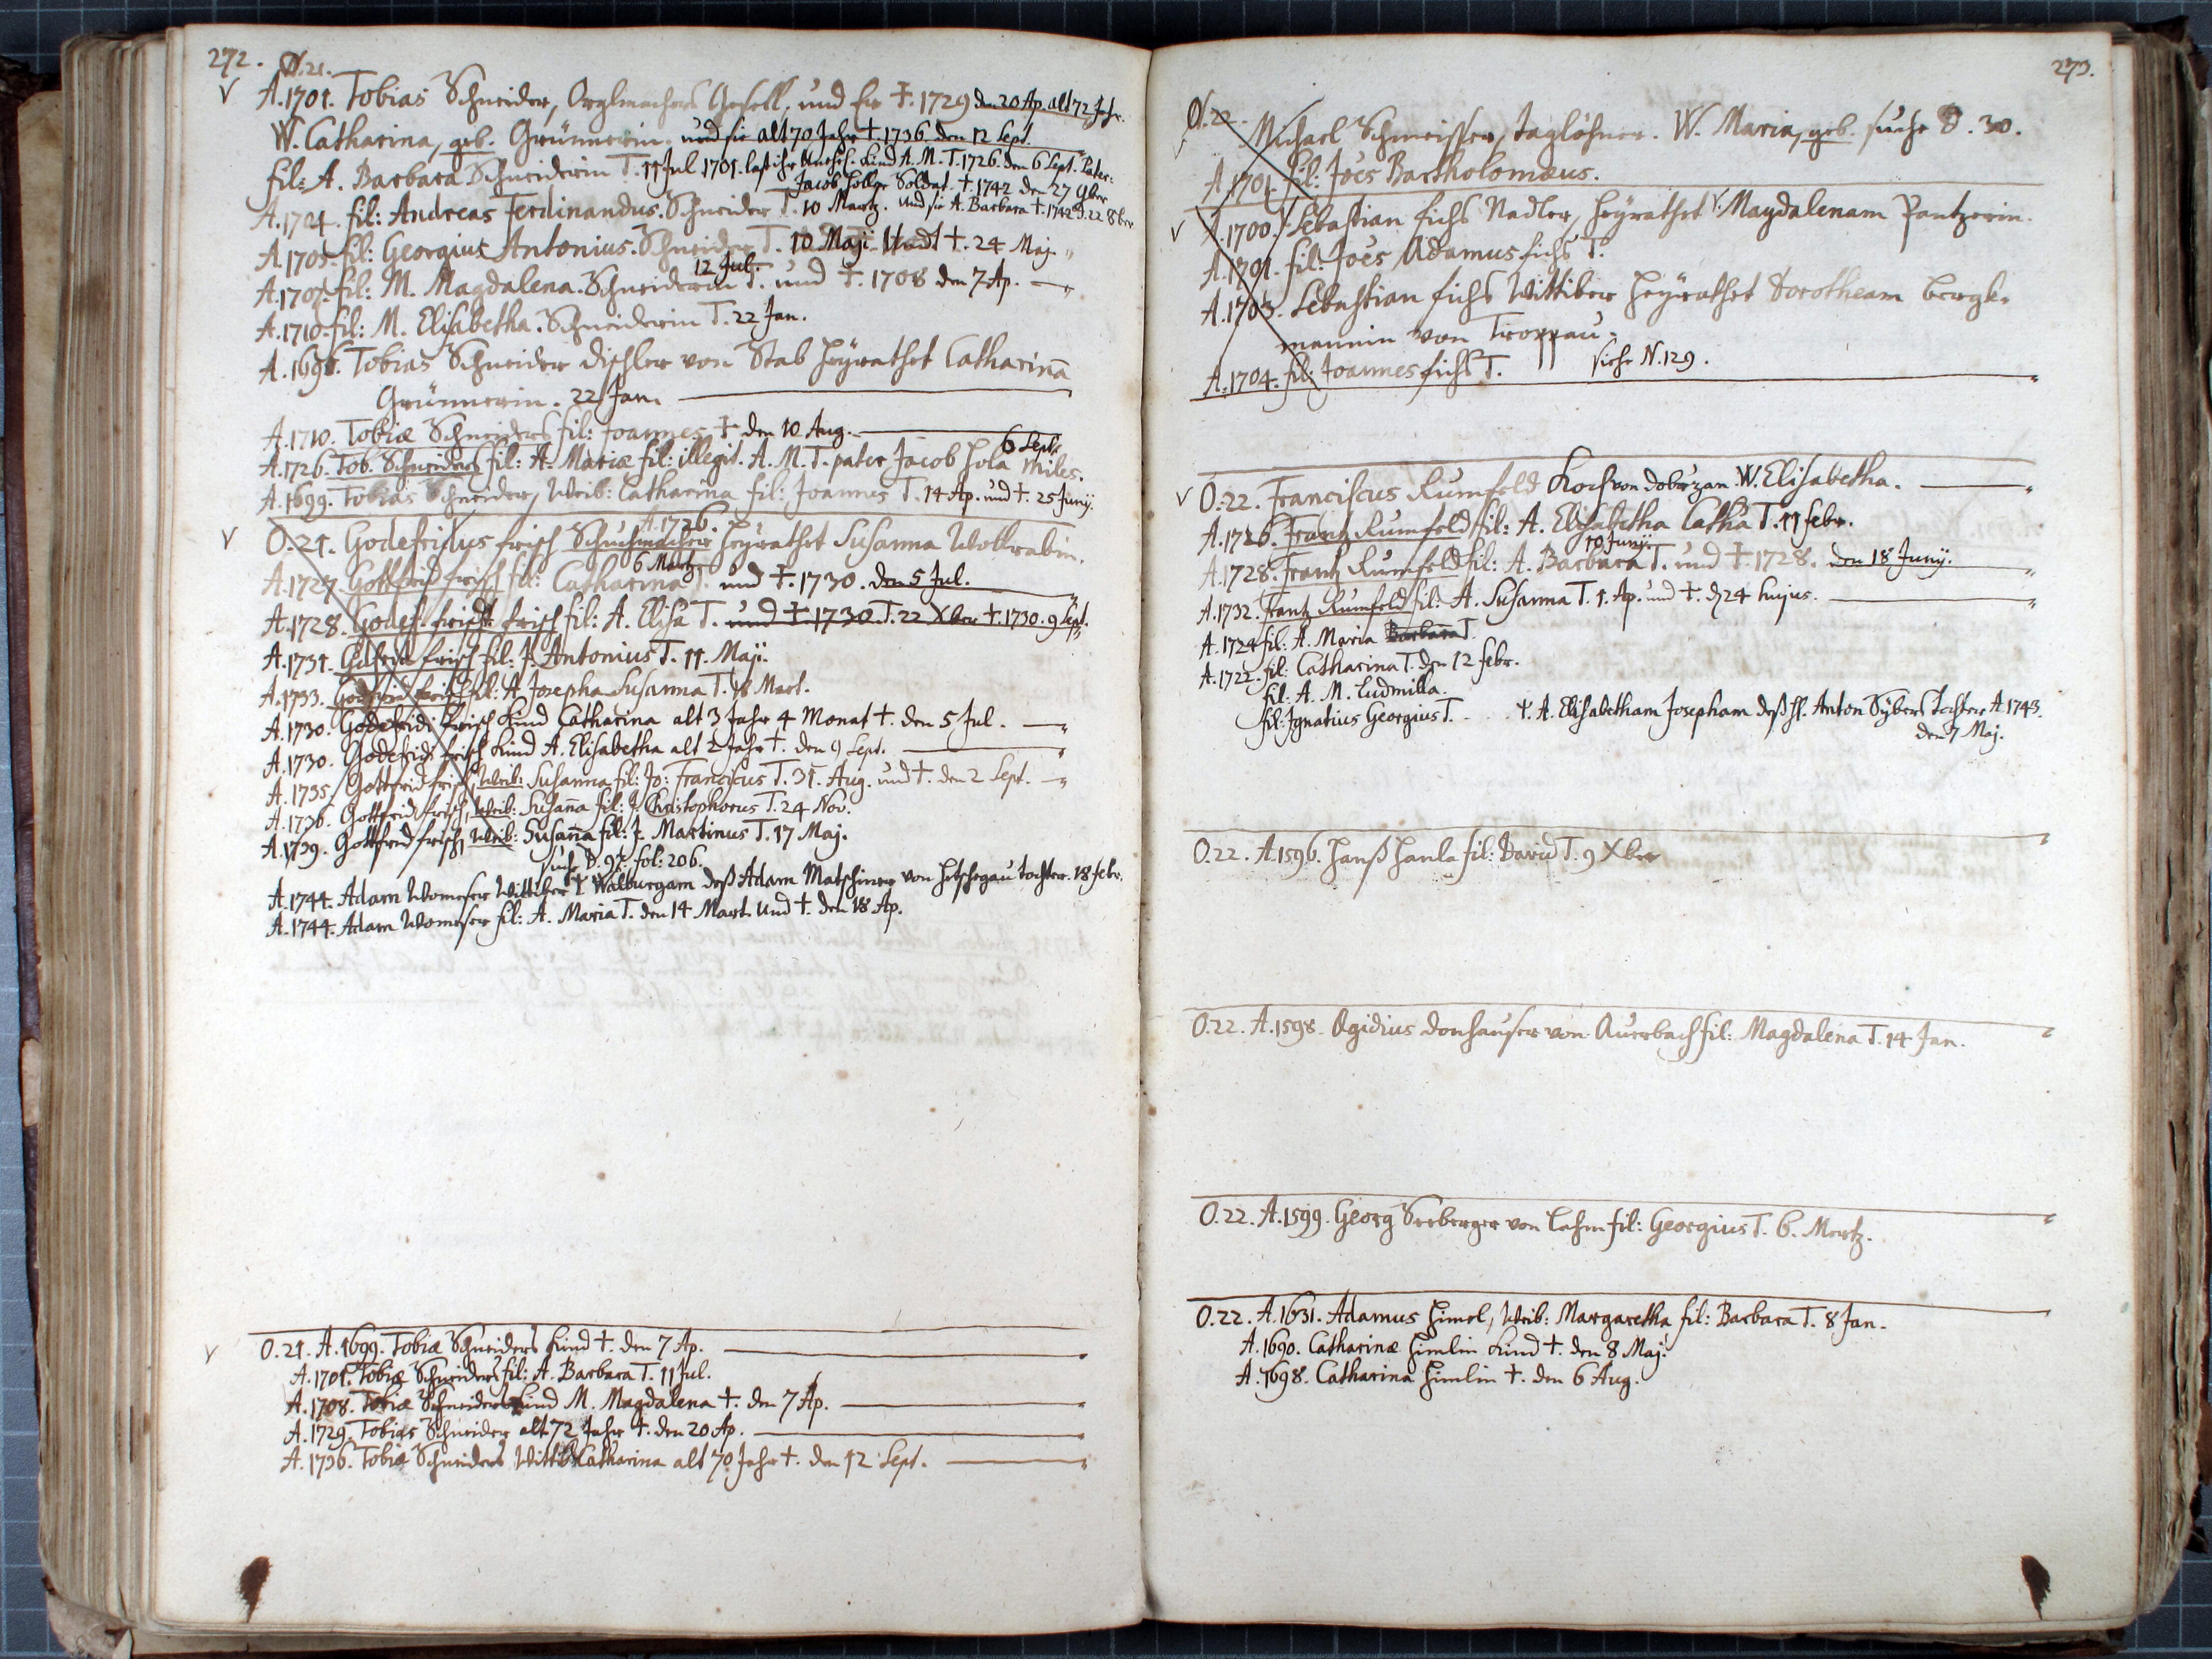 272. O.21.
A.1701. Tobias Schneider, Orglmachers Gesell. und Er †. 1729 den 20 Ap. alt 72 Jahr.
W. Catharina, geb. Grünnerin. und sie alt 70 Jahr †. 1736. den 12 Sept.
fil: A. Barbara Schneiderin T. 11 Jul 1701. ihr Kind A. M. T. 1726. den 6 Sept. Pater:
Jacob Soldat. †. 1742 den 27 9ber
A.1704. fil: Andreas Ferdinandus. Schneider T. 10 Martz. und sie A. Barbara † 1742 d. 22 8ber
A.1705. fil: Georgius Antonius. Schneider T. 10 Maji. Undt †. 24 Maj.
12 Jul.
A.1707. fil: M. Magdalena. Schneiderin T. und †. 1708 den 7 Ap.
A.1710. fil: M. Elisabetha. Schneiderin T. 22 Jan.
A.1696. Tobias Schneider Dischler von Stab heÿrathet Catharina
Grünnerin. 22 Jan.
A.1710. Tobiæ Schneiders fil: Joannes † den 10 Aug.
6 Sept.
A.1726. Tob. Schneiders fil: A. Mariæ fil: illegit. A. M. T. pater Jacob Hola Miles.
A.1699. Tobias Schneider, Weib: Catharina fil: Joannes T. 14 Ap. und †. 25 Junÿ.
A.1726.
O.21. Godefridus Frisch Schuchmacher heÿrathet Susanna Wollrabin.
6 Martz
A.1727. Gottfrid Frisch fil: Catharina T. und †. 1730. den 5 Jul.
A.1728. Godef. Frisch fil: A. Elisa T. und † 1730. T. 22 Xber †. 1730. 9 Sept.
A.1731. Frisch fil: J. Antonius T. 11. Maji.
A.1733. Godfrid Frisch fil: A. Josepha Susanna T. 18 Mart.
A.1730. Godefridi Frisch Kind Catharina alt 3 Jahr 4 Monat †. den 5 Jul.
A.1730. Godefridi Frisch Kind A. Elisabetha alt 2 Jahr †. den 9 Sept.
A.1735. Gottfrid Frisch, Weib: Susanna fil: Jo: Franciscus T. 31. Aug. und †. den 2 Sept.
A.1736. Gottfrid Frisch, Weib: Susana fil: J. Christophorus T. 24 Nov.
A.1739. Gottfrid Frisch, Weib: Susana fil: J. Martinus T. 17 Maj.
suche D. 97. fol: 206.
A.1744. Adam Womeser Wittiber Walburgam deß Adam Matschiner von Tochter. 18 Febr.
A.1744. Adam Womeser fil: A. Maria T. den 14 Mart. und †. den 18 Ap.
O.21. A.1699. Tobiæ Schneiders Kind †. den 7 Ap.
A.1701. Tobiæ Schneiders fil: A. Barbara T. 11 Jul.
A.1708. Tobiæ Schneiders Kind M. Magdalena †. den 7 Ap.
A.1729. Tobias Schneider alt 72 Jahr †. den 20 Ap.
A.1736. Tobiæ Schneiders Wittib Catharina alt 70 Jahr †. den 12 Sept.
273.
O.22. Michael Schmeisser, Taglöhner. W. Maria, geb. suche 30.
A.1701. fil: Joes Bartholomæus.
A.1700. Sebastian Fichs Nadler, heÿrathet Magdalenam Pantzerin.
A.1701. fil: Joes Adamus Fichs T.
A.1703. Sebastian Fichs Wittiber heÿrathet Dorotheam Bergk-
mannin von Troppau.
A.1704. fil: Joannes Fichs T. siehe N.129.
O.22. Franciscus Rumfeld Koch von Dobrzan. W. Elisabetha.
A.1726. Frantz Rumfeld fil: A. Elisabetha Catha T. 11 Febr.
10 Junÿ.
A.1728. Frantz Rumfeld fil: A. Barbara T. und † 1728. den 18 Junÿ.
A.1732. Frantz Rumfeld fil: A. Susanna T. 1. Ap. und †. d 24 hujus.
A.1724 fil: A. Maria Barbara T.
A.1722. fil: Catharina T. den 12 Febr.
fil: A. M. Ludmilla.
fil: Ignatius Georgius T. A. Elisabetham Josepham deß H. Anton Sÿbers Tochter A 1743.
den 7 Maj.
O.22. A.1596. Hanß Hanla fil: David T. 9 Xber
O.22. A.1598. Egidius Donhauser von Auerbach fil: Magdalena T. 14 Jan.
O.22. A.1599. Georg Seeberger von Lahm fil: Georgius T. 6. Mertz.
O.22. A.1631. Adamus Himel, Weib: Margaretha fil: Barbara T. 8 Jan.
A.1690. Catharinæ Himlin Kind †. den 8 Maj.
A.1698. Catharina Himlin †. den 6 Aug.